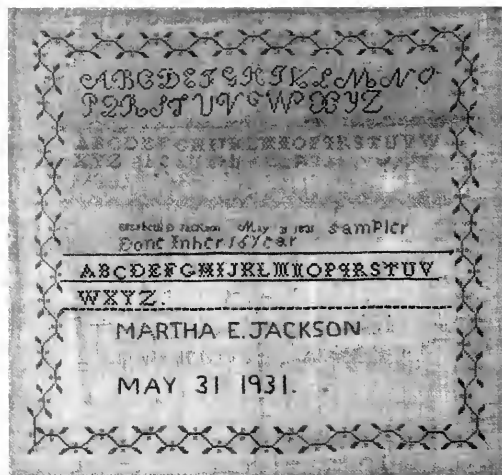 ABCDEFGHIJKLMNO
PQRSTUVWXYZ
ABCDEFGHIJKLMNOPQRSTUVW
XYZ
Jackson May Sampler
Done In her 16 year
ABCDEFGHIJKLMNOPQRSTUV
WXYZ.
MARTHA E. JACKSON
MAY 31 1931.